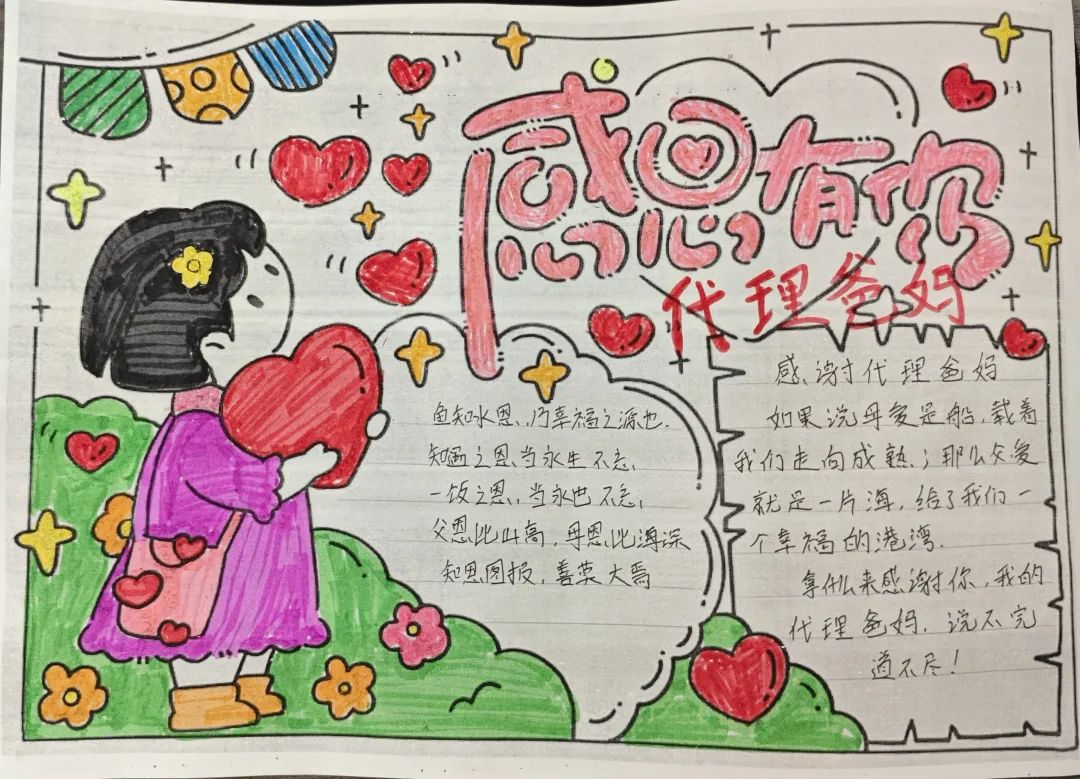 感恩有你
代理爸妈
鱼知水恩、乃幸福之源也.
知遇之恩、当永生不忘、
一饭之恩、当永世不忘、
父恩比山高，母恩比海深
知恩图报，善莫大焉
感谢代理爸妈
如果说，母爱是船，载着
我们走向成熟；那么父爱
就是一片海，给了我们一
个幸福的港湾.
拿什么来感谢你，我的
代理爸妈.说不完
道不尽！